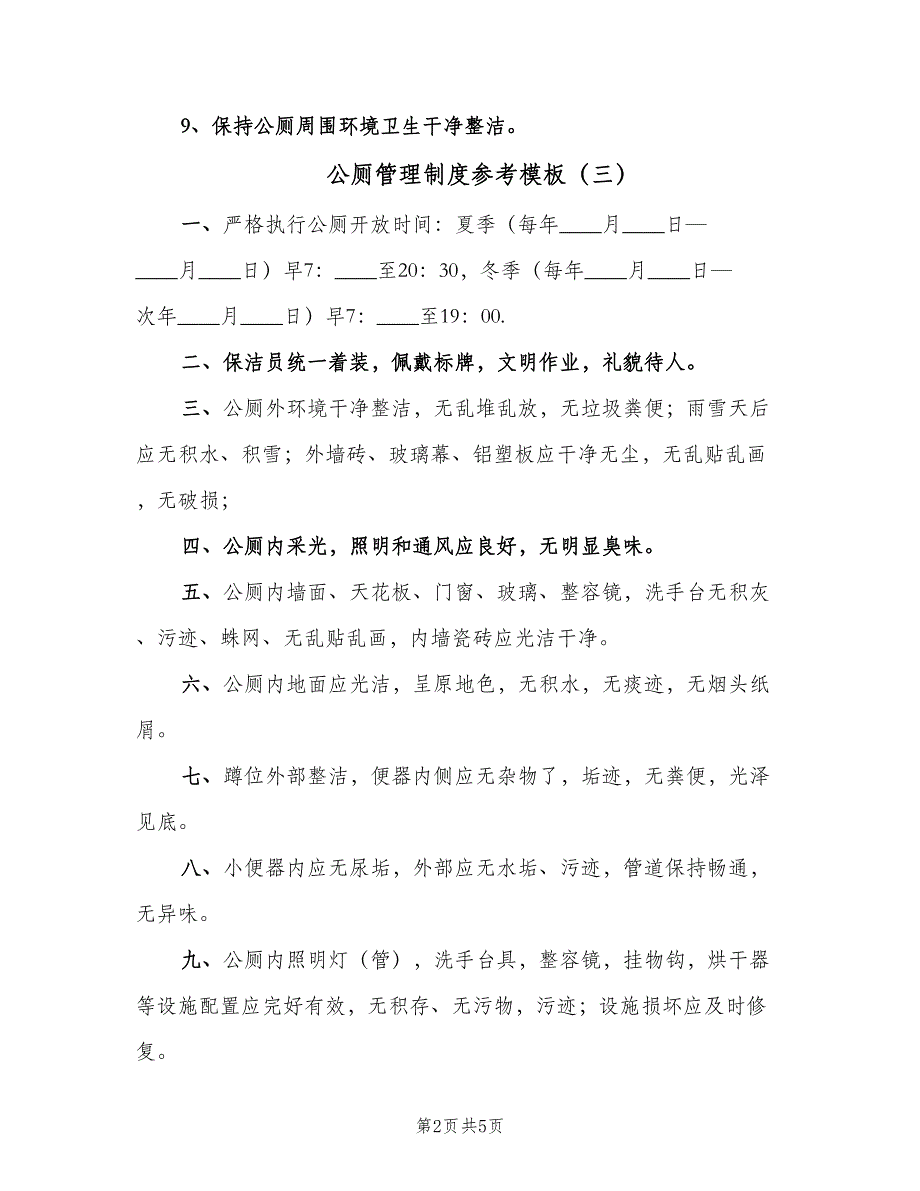 9、保持公厕周围环境卫生干净整洁。
公厕管理制度参考模板（三）
一、严格执行公厕开放时间：夏季（每年____月____日—
____月____日）早7：____至20：30，冬季（每年____月____日—
次年____月____日）早7：____至19：00.
二、保洁员统一着装，佩戴标牌，文明作业，礼貌待人。
三、公厕外环境干净整洁，无乱堆乱放，无垃圾粪便；雨雪天后
应无积水、积雪；外墙砖、玻璃幕、铝塑板应干净无尘，无乱贴乱画
，无破损；
四、公厕内采光，照明和通风应良好，无明显臭味。
五、公厕内墙面、天花板、门窗、玻璃、整容镜，洗手台无积灰
、污迹、蛛网、无乱贴乱画，内墙瓷砖应光洁干净。
六、公厕内地面应光洁，呈原地色，无积水，无痰迹，无烟头纸
屑。
七、蹲位外部整洁，便器内侧应无杂物了，垢迹，无粪便，光泽
见底。
八、小便器内应无尿垢，外部应无水垢、污迹，管道保持畅通，
无异味。
九、公厕内照明灯（管），洗手台具，整容镜，挂物钩，烘干器
等设施配置应完好有效，无积存、无污物，污迹；设施损坏应及时修
复。
第2页共5页